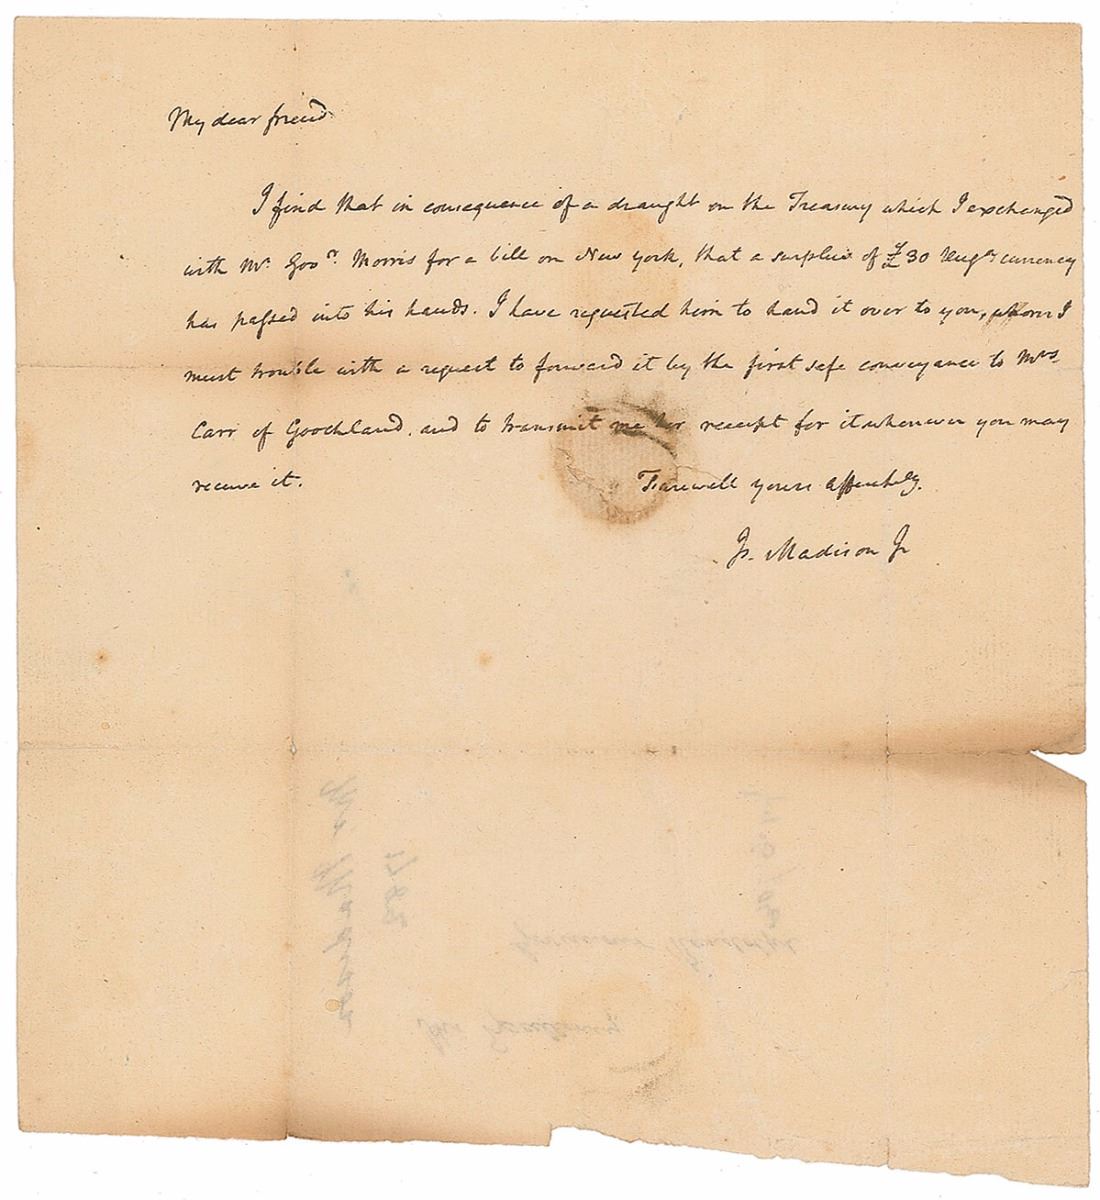 My dear friend
I find that in consequence of a draught on the Treasury which I exchanged
with Mr. Govr. Morris for a bill on New York, that a surplus of £30 Virga currency
has passed into his hands. I have requested him to hand it over to you, whom I
must trouble with a request to forward it by the first safe conveyance to Mrs.
Carr of Goochland, and to transmit me her receipt for it whenever you may
receive it.
Farewell yours affectely.
Js. Madison Jr
His Excellency
Governour Randolph